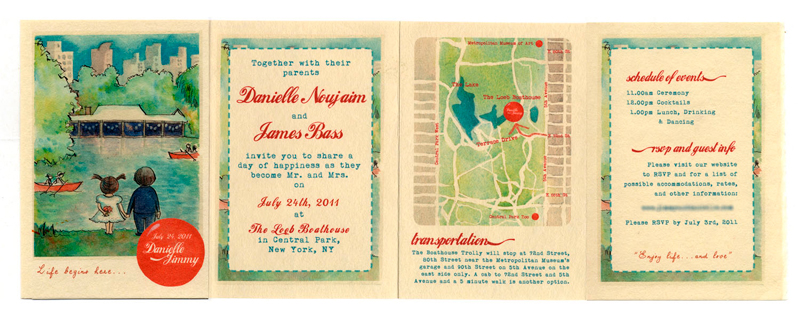 July 24, 2011
Danielle
Jimmy
Life begins here...
Together with their
parents
Danielle Noujaim
and
James Bass
invite you to share a
day of happiness as they
become Mr. and Mrs.
on
July 24th, 2011
at
The Loeb Boathouse
in Central Park,
New York, NY
Metropolitan Museum of Art
The Lake
The Loeb Boathouse
Terrace Drive
Central Park West
5th Avenue
5th Avenue
Central Park Zoo
transportation
The Boathouse Trolly will stop at 72nd Street,
80th Street near the Metropolitan Museum's
garage and 90th Street on 5th Avenue on the
east side only. A cab to 72nd Street and 5th
Avenue and a 5 minute walk is another option.
schedule of events
11.00am Ceremony
12.00pm Cocktails
1.00pm Lunch, Drinking
& Dancing
rsvp and guest info
Please visit our website
to RSVP and for a list of
possible accommodations, rates,
and other information:
Please RSVP by July 3rd, 2011
"Enjoy life...and love"